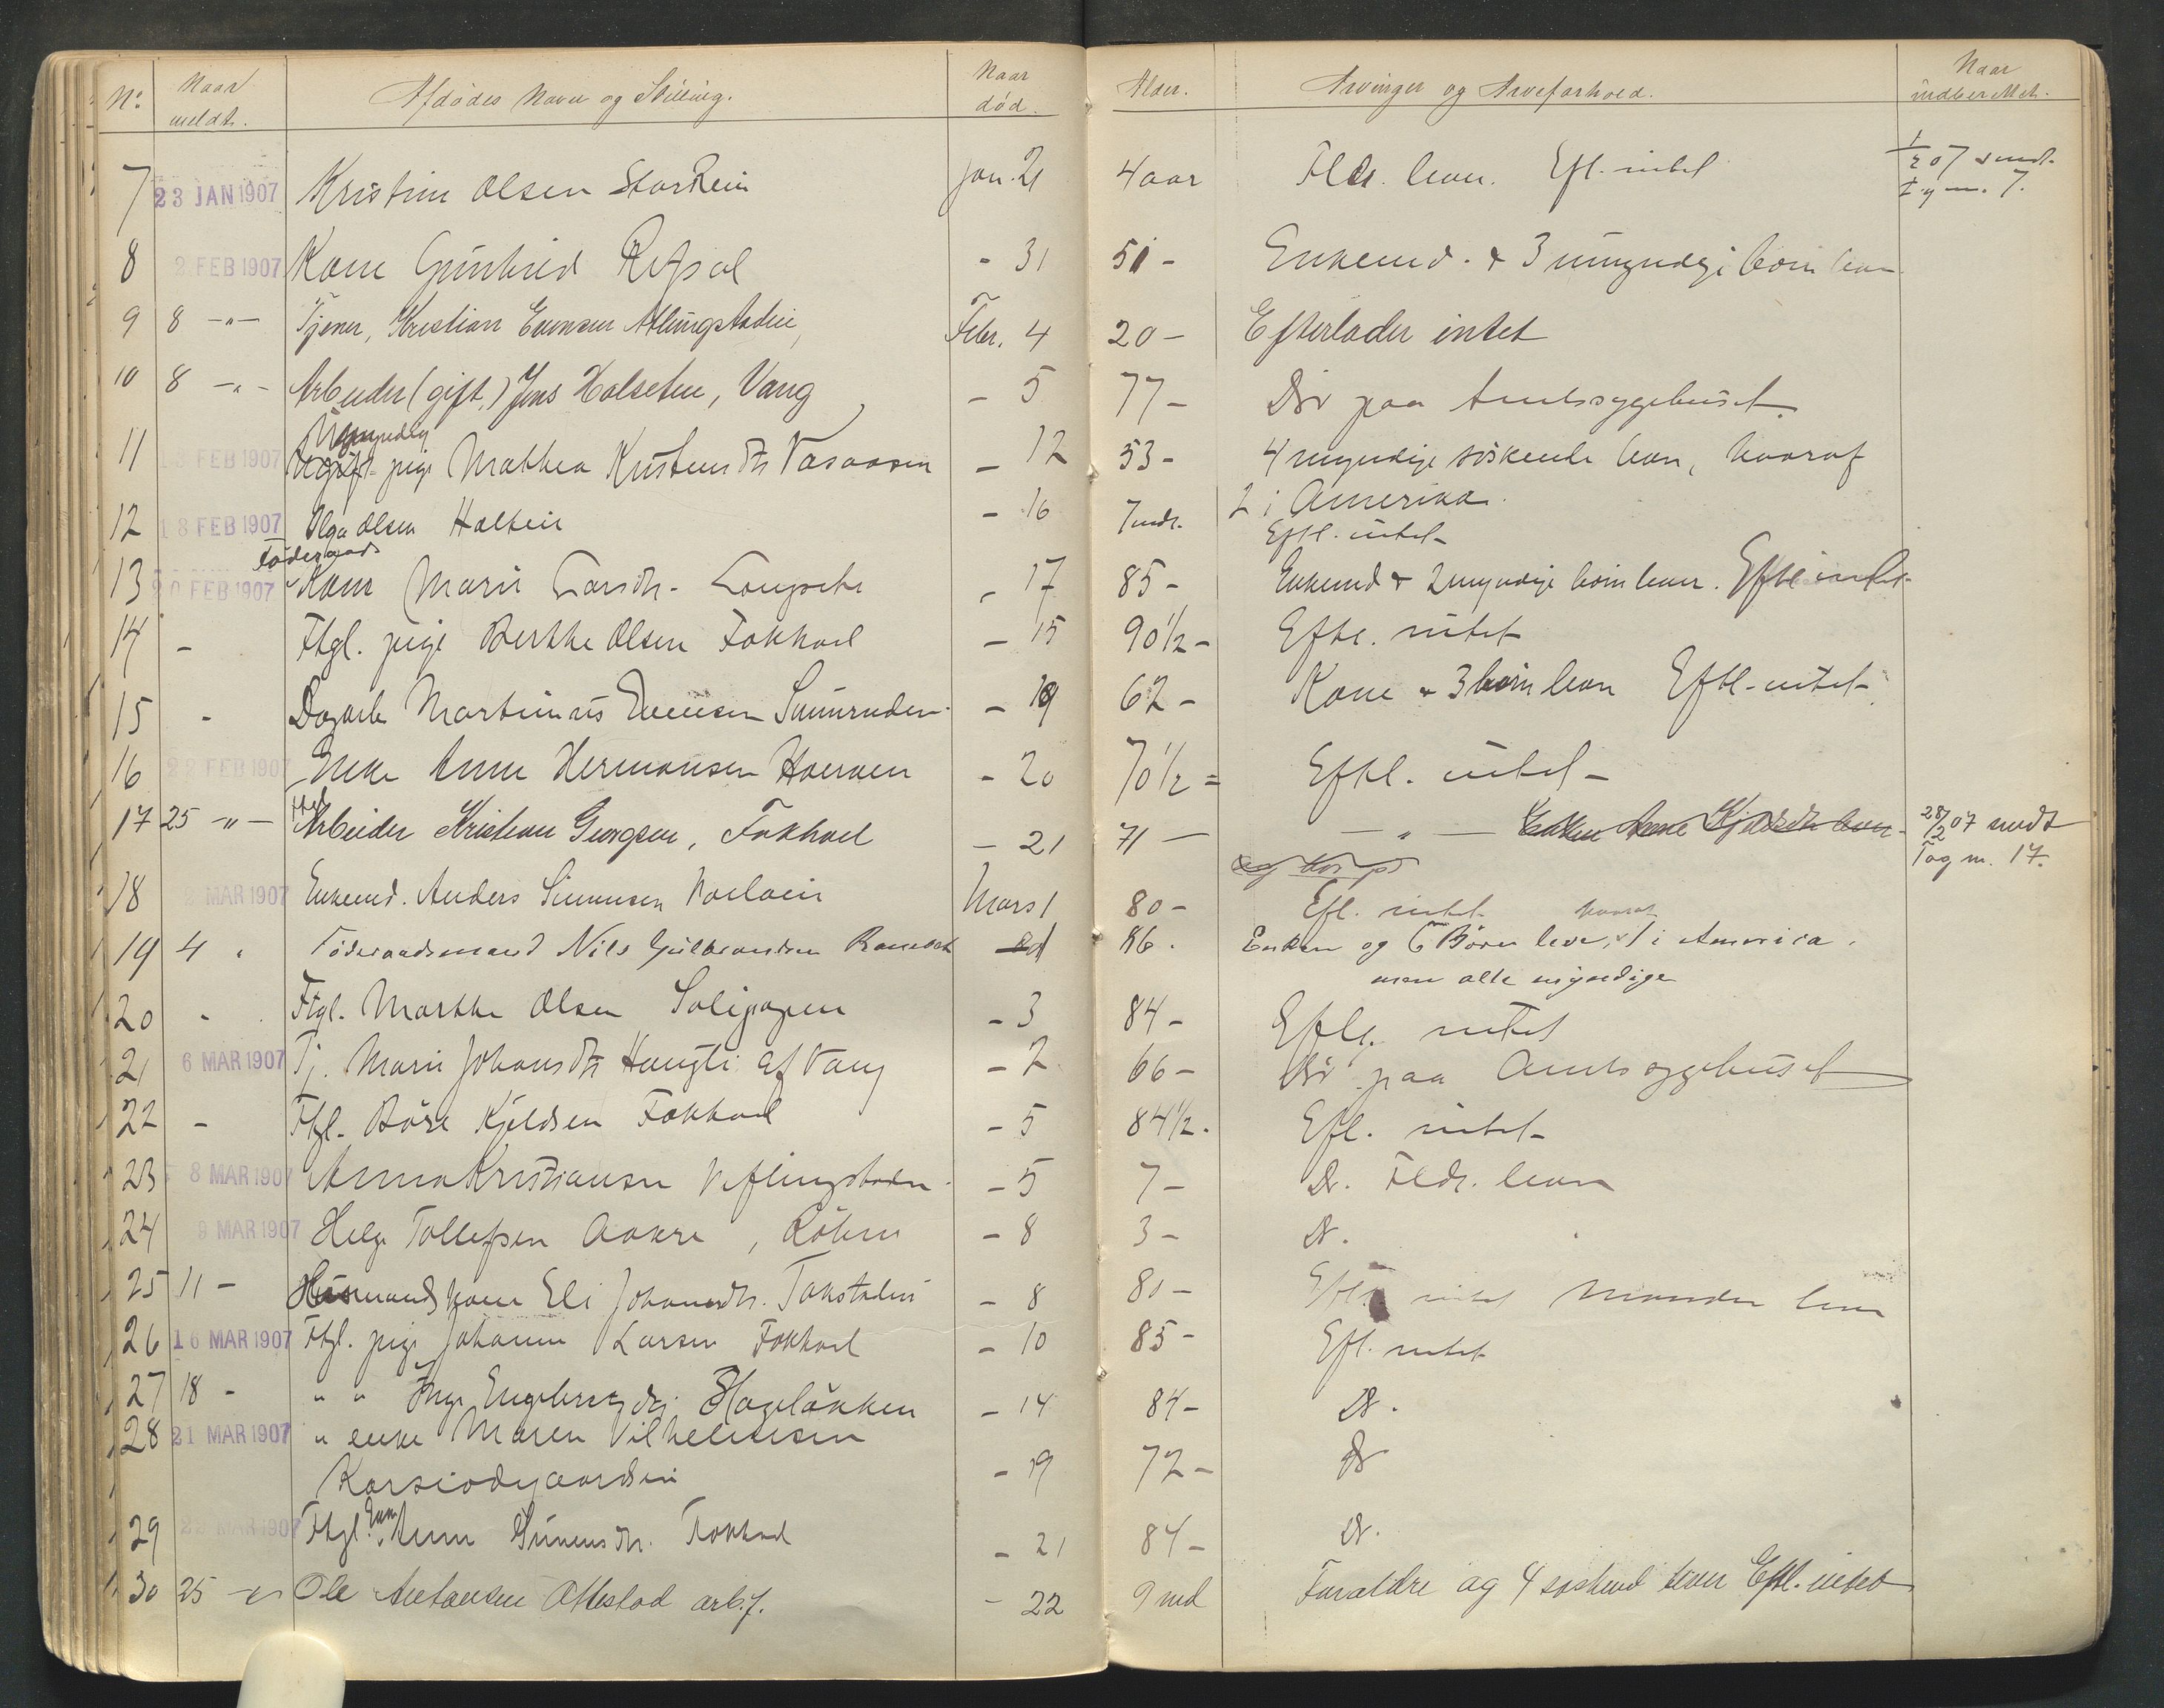 No. Naar meldt. Afdødes Navn og Stilling. Naar død. Alder. Arvinger og Arveforhold. Naar indberettet.
7 23 JAN 1907 Kristine Olsen Jan. 21 4 aar Fldr. lever. Efl. intet 1/2 07 sendt
T. og m. 7.
8 2 FEB 1907 Kone Gunhild Refsal - 31 51 - Enkemd. + 3 umyndige børn lever
9 8 -"- Tjener, Kristian Evensen Febr. 4 20 - Efterlader intet
10 8 -"- Arbeider (gift,) Jens Halseteu, Vang - 5 77 - Dør paa Amtssygehuset
11 FEB 1907 Ugift pige Mathea Kristensdtr Vasaasen - 12 53 - 4 myndige søskende lever, hvoraf
2 i Amerika.
12 18 FEB 1907 Olga Olsen - 16 7 mdr. Eftl. intet -
Føderaads
13 20 FEB 1907 Kone Marie Larsdtr. - 17 85 - Enkemd + 2 myndige børn lever. Eftl intet
14 - Ftgl. pige Berthe Olsen Fokhoel - 15 90 1/2 - Eftl. intet
15 - Dagarb Martinus Evensen - 19 62 - Kone + 3 børn lever Eftl - intet -
16 22 FEB 1907 Enke Anne Hermansen - 20 70 1/2 = Eftl. intet -
ftgl
17 25 -"- Arbeider Kristian Georgsen, Fokhoel - 21 71 - -"- Enken Anne lever 28/2 07 sendt
T og m. 17.
18 2 MAR 1907 Enkemd. Anders Simensen Mars 1 80 - Efl. intet
19 4 " Føderaadsmand Nils Gulbrandsen 86. Enken og 6 Børn lever, hvoraf 1 i America,
men alle myndige
20 - Ftgl. Marthe Olsen - 3 84 - Eftl. intet
21 6 MAR 1907 Tj. Marie Johansdtr af Vang - 2 66 - Dør paa Amtssygehuset
22 - Ftgl. Kjeldsen Fokhoel - 5 84 1/2. Efl. intet -
23 8 MAR 1907 Anna Kristiansen - 5 7 - Do. Fldr. lever
24 9 MAR 1907 Helge Tollefsen Aakre, Løten - 8 3 - Do.
25 11 - Husmandskone Eli Johannesdtr. - 8 80 - Eftl. intet Manden lever
26 16 MAR 1907 Ftgl. pige Johanne Larsen Fokhoel - 10 85 - Efl. intet
27 18 - " " Inge Hageløkken - 14 84 - Do.
28 21 MAR 1907 " enke Maren Vilhelmsen
- 19 72 - Do
29 22 MAR 1907 Ftgl. Enke Anne Simensdtr. Fokhoel - 21 84 - Do.
30 25 -"- Ole Antonsen Ottestad arb.f. - 22 9 md Forældre og 4 søskend lever Eftl. intet